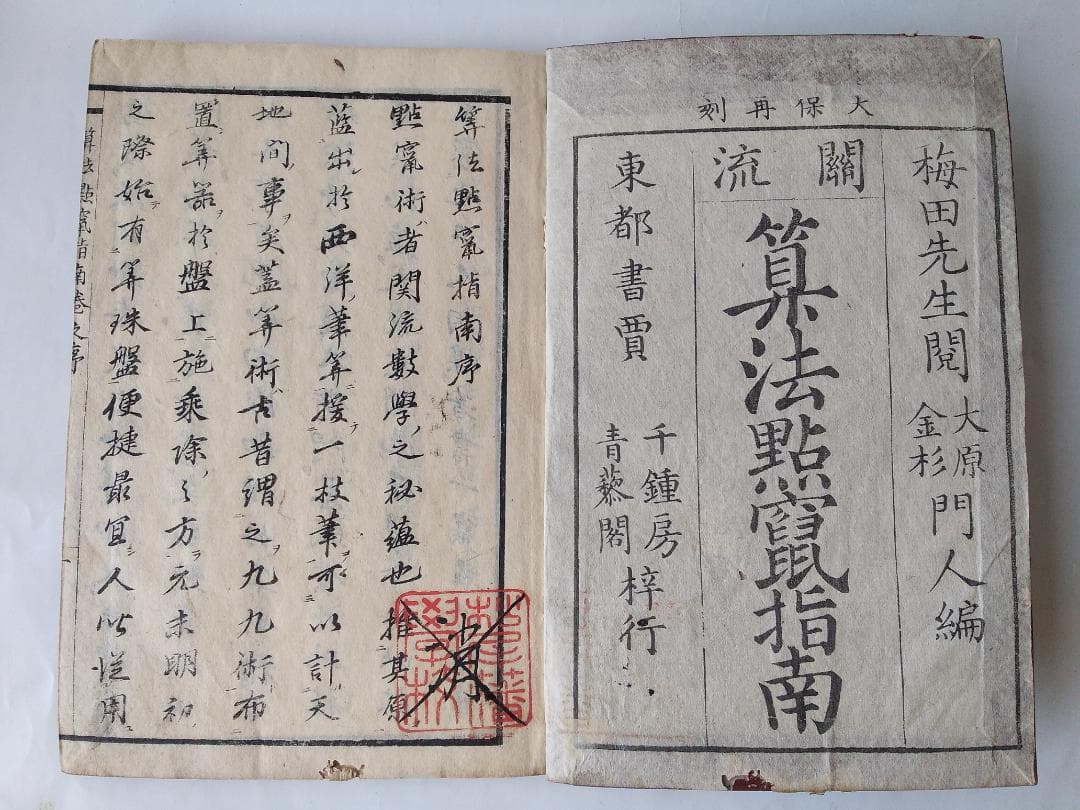 大保再刻
梅田先生閲 大原 金杉 門人編
關流
算法點竄指南
東都書賈 千鍾房 青藜閣 梓行
筭法點竄指南序
點竄術者関流數學之秘蘊也推其原
藍出於西洋筆筭援一枝筆可以計天
地間事矣蓋筭術古昔謂之九九術布
置筭器於盤上施乘除之方元末明初
之際始有筭珠盤便捷最宜人皆從用
算法點竄指南卷之序
消